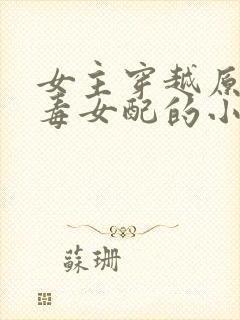 女主穿越原
毒女配的小
蘇珊